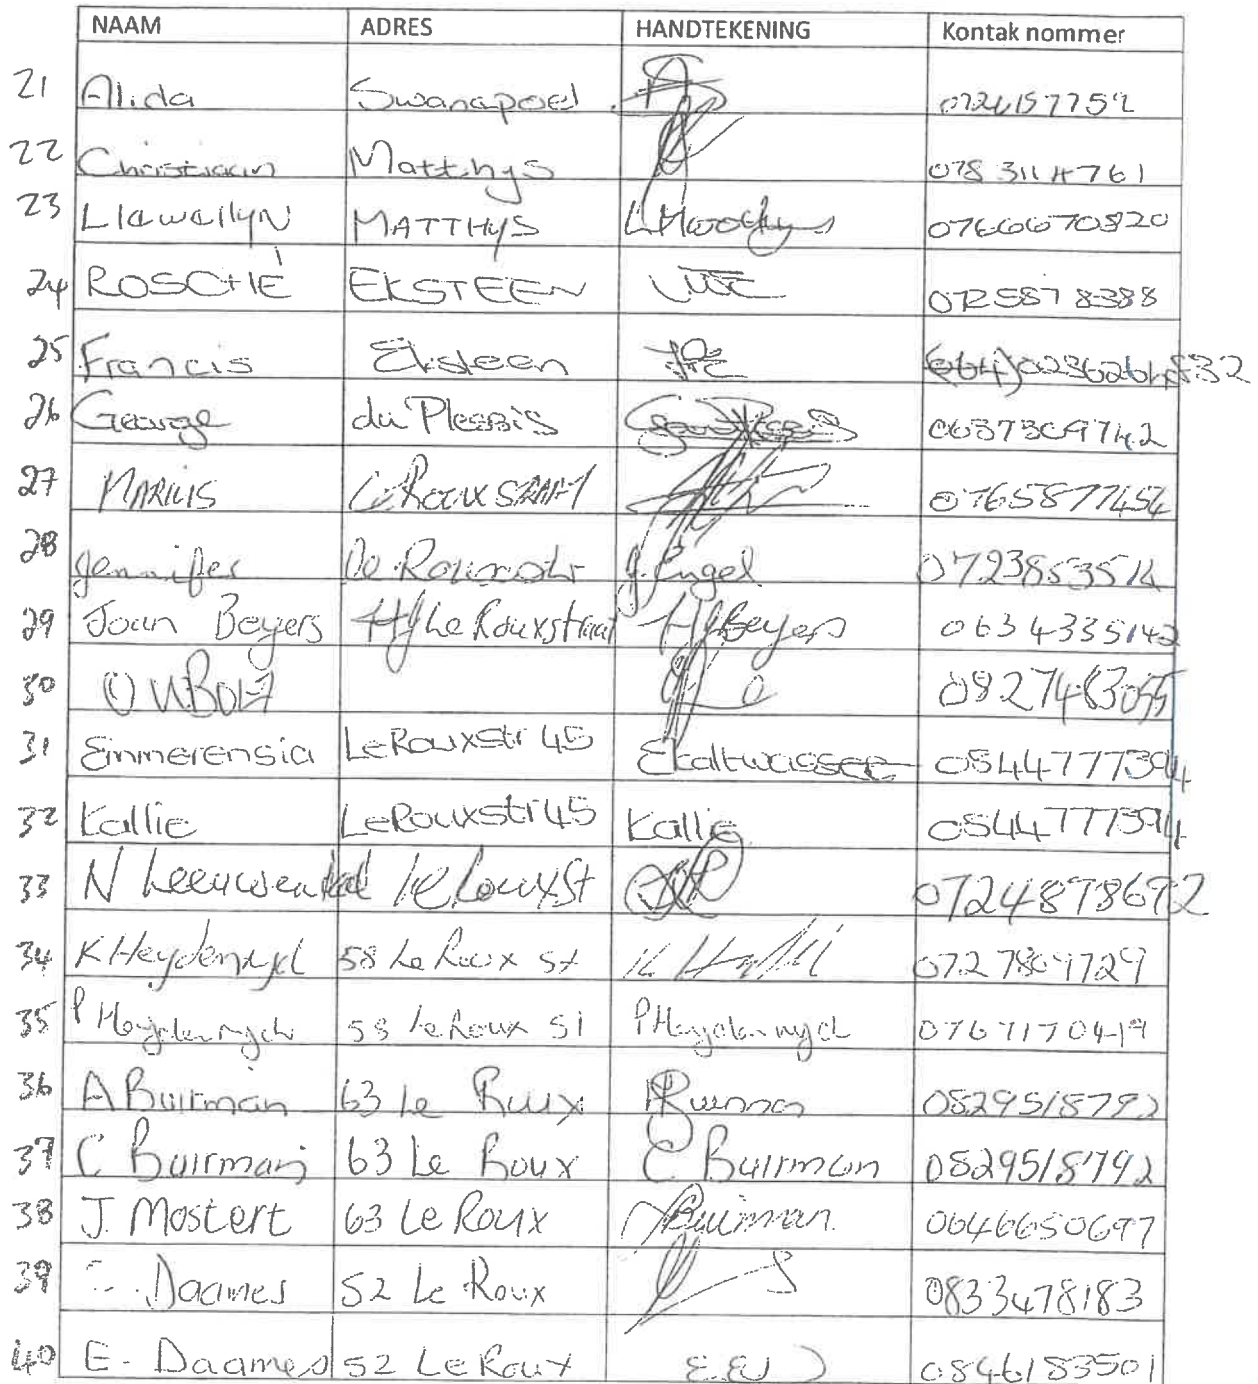 NAAM ADRES HANDTEKENING Kontak nommer
21 Alida Swanapoel
22 Christiaan Matthys 078 3114761
23 Llewellyn MATTHYS L Matthys 0766670820
24 ROSCHÉ EKSTEEN 0725878388
25 Francis Eksteen
26 George du Plessis 0637309742
27 MARIUS 0765877454
28 Jennifer J. Engel 0723853514
29 Joan Beyers HJ Le Rouxstraat HJ Beyers 0634335142
30
31 Emmerensia Le Rouxstr 45 Ekaltwasser 0544777394
32 Kallie Le Rouxstr 45 Kallie 0544777394
33 N Leeuwendal le Roux St 0724878692
34 K Heydenrych 58 Le Roux St 0727809729
35 P Heydenrych 58 Le Roux St P Heydenrych 0767170419
36 A Buirman 63 Le Roux 0829518792
37 C Buirman 63 Le Roux C Buirman 0829518792
38 J. Mostert 63 Le Roux Buirman 0646650697
39 Daames 52 Le Roux 0833478183
40 E. Daames 52 Le Roux 0846183501